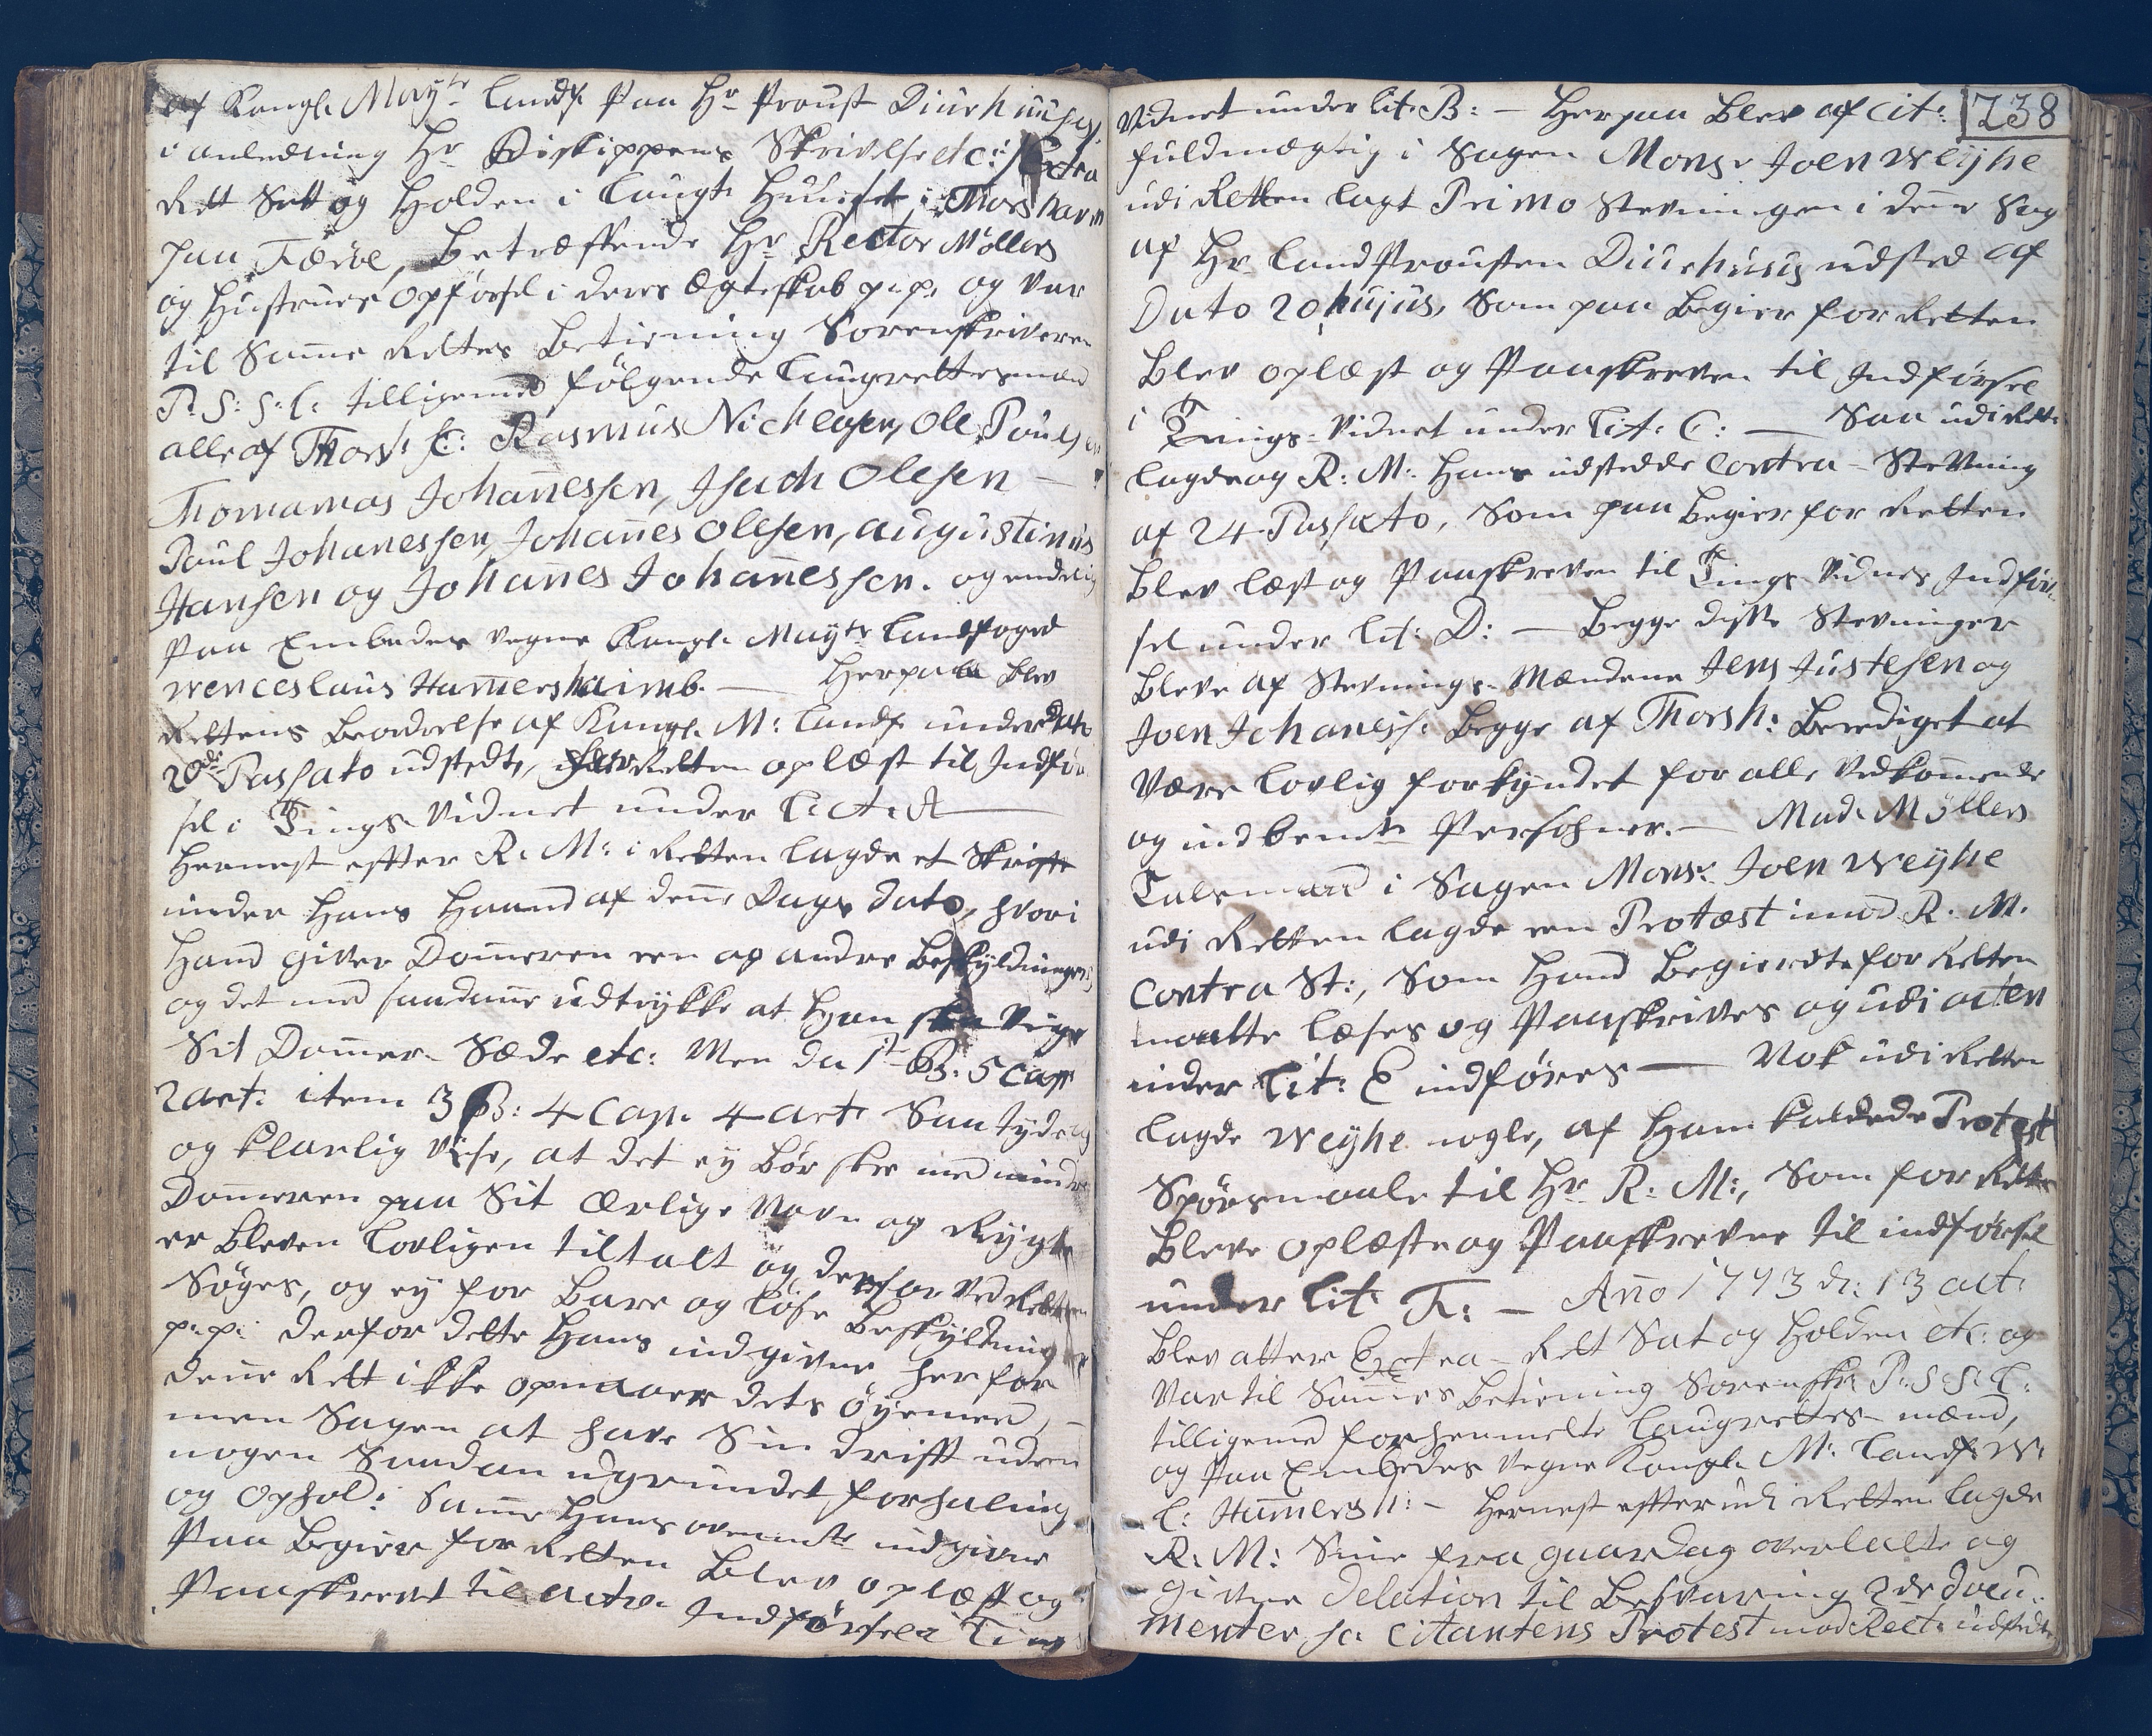 af Kongl. May<sup>ts</sup> Landf. Paa Hr Proust Diurhuuses
i anledning Hr Biskippens Skrivelse etc: Extra
Rett Satt og Holden i Laugt: Huuset i Thorshavn
paa Færöe, Betræffende Hr Rector Möllers
og Hustrues opförsel i deres Ægteskab p.p. og var
til Samme Rettes Betiening Sorenskriveren
P. S: S: L: tilligemed fölgende Laugrettesmænd
alle af Thorsh: sc: Rasmus Nichlasen, Ole Poulsen
Thomamas Johannessen, Isach Olesen —
Paul Johanessen, Johannes Olesen, Augustinus
Hansen og Johannes Johannessen. og endelig
Paa Embedes vegne Kongl. May<sup>ts</sup> Landfoged
Wenceslaus Hammershaimb. — Herpaa Blev
Rettens Beordrelse af Kongl. M: Landf. under dato
20de Passato udstedt, for Retten oplæst til Indför
sel i Tings-Vidnet under Lit. A —
Hernest effter R. M: i Retten lagde et Skrift
under Hans Haand af denne Dags Dato, hvori
Hand giver Dommeren een og andre Beskyldninger
og det med saadanne udtrykke at Han skal vige
Sit Dommer-Sæde etc: Men da 1te B: 5 Cap
2 art: item 3 B: 4 Cap. 4 art: Saa tydelig
og klarlig viise, at det ey bör skee med mindre
Dommeren paa Sit Ærlige Navn og Rygte
er bleven Lovligen tiltalt og derfor ved Retten
Söges, og ey for Bare og Löse Beskyldninger
p.p: Derfor dette Hans indgivne her for
denne Rett ikke opnaaer dets öyemed, —
men Sagen at have Sin drift uden
nogen Saadan ugrundet forhaling
og Ophold: Samme Hans ovenmte indgivne
Paa Begier for Retten Blev oplæst og
Paaskrevet til acte Indförsel i Ting
238
Vidnet under Lit. B: — Herpaa Blev af Cit:
fuldmægtig i Sagen Monsr Joen Weyhe
udi Retten lagt Primo Stevningen i denne Sag
af Hr Landprousten Diurhuus udsted af
Dato 20 hujus, Som paa Begier for Retten
Blev oplæst og Paaskreven til Indförsel
i Tings-Vidnet under Lit: C: — Saa udi Rett:
lagde og R: M: Hans udstedde Contra-Stevning
af 24 Passato, Som paa Begier for Retten
Blev læst og Paaskreven til Tings Vidnes Indför
sel under Lit: D: — Begge disse Stevninger
Bleve af Stevnings-Mændene Jens Justesen og
Joen Johaness: Begge af Thorsh: Beediget at
Være Lovlig forkyndet for alle Vedkommende
og indbemte Persohner. — Mad. Möllers
Talsmand i Sagen Monsr. Joen Weyhe
udi Retten lagde een Protæst imod R. M.
Contra St:, Som Hand Begierdte for Retten
maatte læses og Paaskrives og udi acten
under Lit: E indföres — Nok udi Retten
lagde Weyhe nogle, af Ham kaldede Protest
Spörsmaale til Hr R: M:, Som for Retten
Bleve oplæste og Paaskrevne til indförsel
under Lit: F: — Anno 1773 d: 13 act:
Blev atter Extra-Rett Sat og Holden etc: og
Var til Sammes Betiening Sorenskr. P: S: S: L:
tilligemed forhenmelte Laugrettes-mænd,
og Paa Embedes Vegne Kongl. M: Landf. W:
C: Hammersh: — Hernest effter udi Retten lagde
R: M: Sine fra gaardag overlatte og
givne Delation til Besvaring 2de Docu-
menter, sc: Citantens Protest mod Rect: udstedte